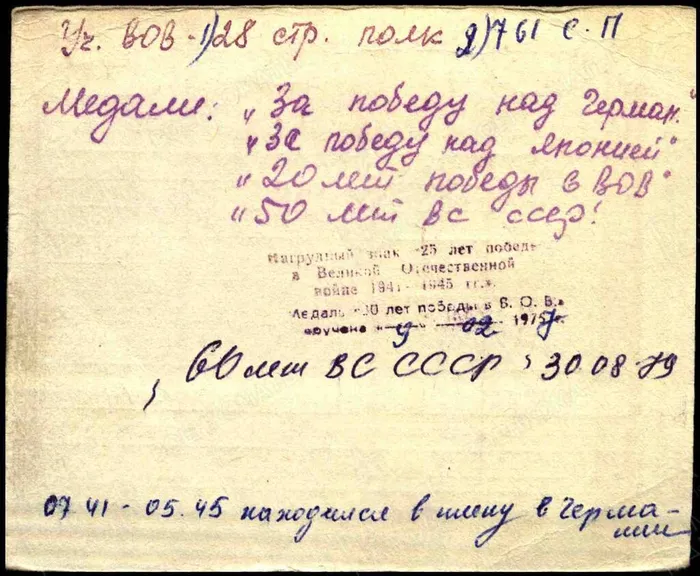 Уч. ВОВ - 1) 28 стр. полк 2) 761 с. п
Медали: „За победу над Герман."
„За победу над Японией"
„20 лет победы в ВОВ"
„50 лет ВС СССР!
Нагрудный знак «25 лет победы
в Великой Отечественной
войне 1941-1945 гг.».
Медаль «30 лет победы в В. О. В.»
вручена «9» 02 1977г.
, 60 лет ВС СССР, 30.08.79
07 41 - 05. 45 находился в плену в Герма-
нии